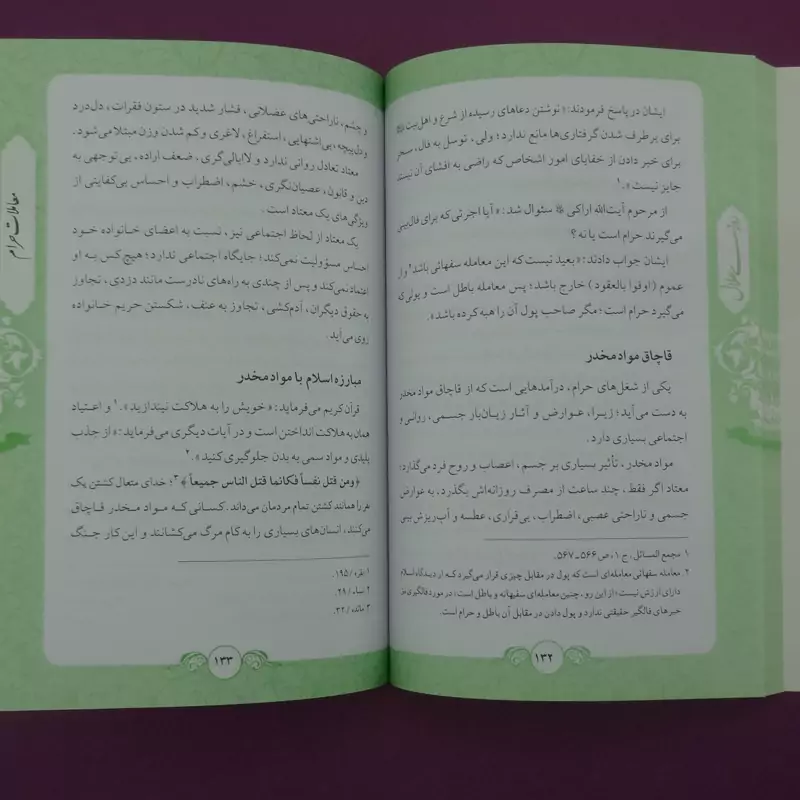 ایشان در پاسخ فرمودند: «نوشتن دعاهای رسیده از شرع و اهل‌بیت
برای برطرف شدن گرفتاری‌ها مانع ندارد؛ ولی، توسل به فال، سحر
برای خبر دادن از خفایای امور اشخاص که راضی به افشای آن نیستند
جایز نیست».۱
از مرحوم آیت‌الله اراکی سئوال شد: «آیا اجرتی که برای فال‌بینی
می‌گیرند حرام است یا نه؟
ایشان جواب دادند: «بعید نیست که این معامله سفهائی باشد۲ و از
عموم (اوفوا بالعقود) خارج باشد؛ پس معامله باطل است و پولی که
می‌گیرد حرام است؛ مگر صاحب پول آن را هبه کرده باشد».
قاچاق مواد مخدر
یکی از شغل‌های حرام، درآمدهایی است که از قاچاق مواد مخدر
به دست می‌آید؛ زیرا، عوارض و آثار زیان‌بار جسمی، روانی و
اجتماعی بسیاری دارد.
مواد مخدر، تأثیر بسیاری بر جسم، اعصاب و روح فرد می‌گذارد؛
معتاد اگر فقط، چند ساعت از مصرف روزانه‌اش بگذرد، به عوارض
جسمی و ناراحتی عصبی، اضطراب، بی‌قراری، عطسه و آب‌ریزش بینی
۱ مجمع المسائل، ج ۱، ص ۵۶۶ ـ ۵۶۷.
۲ معامله سفهائی معامله‌ای است که پول در مقابل چیزی قرار می‌گیرد که از دیدگاه اسلام
دارای ارزش نیست؛ از این رو، چنین معامله‌ای سفیهانه و باطل است؛ در مورد فالگیری نیز
خبرهای فالگیر حقیقتی ندارد و پول دادن در مقابل آن باطل و حرام است.
۱۳۲
معاملات حرام
و چشم، ناراحتی‌های عضلانی، فشار شدید در ستون فقرات، دل‌درد
و دل‌پیچه، بی‌اشتهایی، استفراغ، لاغری و کم شدن وزن مبتلا می‌شود.
معتاد تعادل روانی ندارد و لاابالی‌گری، ضعف اراده، بی توجهی به
دین و قانون، عصیان‌نگری، خشم، اضطراب و احساس بی‌کفایتی از
ویژگی‌های یک معتاد است.
یک معتاد از لحاظ اجتماعی نیز، نسبت به اعضای خانواده خود
احساس مسؤولیت نمی‌کند؛ جایگاه اجتماعی ندارد؛ هیچ‌کس به او
اعتماد نمی‌کند و پس از چندی به راه‌های نادرست مانند دزدی، تجاوز
به حقوق دیگران، آدم‌کشی، تجاوز به عنف، شکستن حریم خانواده
روی می‌آید.
مبارزه اسلام با مواد مخدر
قرآن کریم می‌فرماید: «خویش را به هلاکت نیندازید».۱ و اعتیاد
همان به هلاکت انداختن است و در آیات دیگری می‌فرماید: «از جذب
پلیدی و مواد سمی به بدن جلوگیری کنید».۲
﴿ومن قتل نفساً فکانما قتل الناس جمیعاً﴾۳؛ خدای متعال کشتن یک
نفر را همانند کشتن تمام مردمان می‌داند. کسانی که مواد مخدر قاچاق
می‌کنند، انسان‌های بسیاری را به کام مرگ می‌کشانند و این کار جنگ
۱ بقره / ۱۹۵.
۲ نساء / ۲۹.
۳ مائده / ۳۲.
۱۳۳